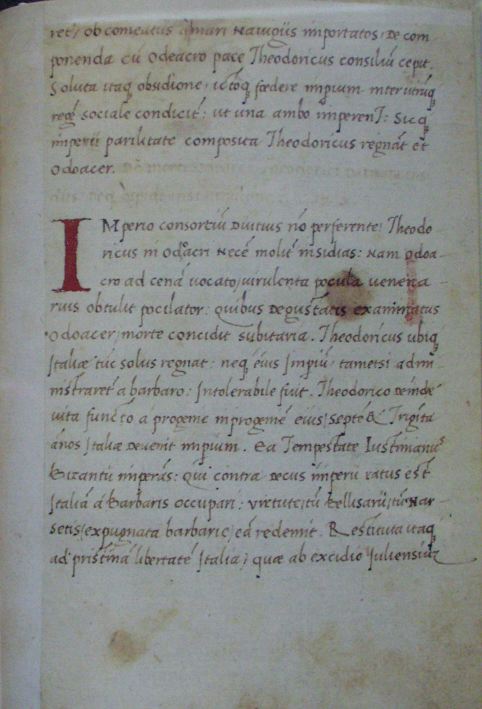 ret, ob comeatus a mari Nauigiis importatos, De com
ponenda cū Odeacro pace Theodoricus consiliū cepit.
Soluta itaq obsidione, ictoq foedere impium inter utrūq
regē sociale condicit: ut una ambo imperent: Sicq
imperii parilitate composita Theodoricus regnat et
Odoacer.
IMperio consortiū Diutius nō perferente, Theodo
ricus ni Odoacri Necē molit insidias: Nam Odoa
cro ad cenā vocato, virulenta pocula venena
rius obtulit pocilator: Quibus Degustatis examinatus
Odoacer, morte concidit subitaria. Theodoricus ubiq
Italiae tūc solus regnat: neq eius impiū, tametsi admi
nistraret a barbaro: Intolerabile fuit. Theodorico Deinde
vita functo a progenie in progeniē eius, septē & Trigīta
ānos Italiae Devenit impium. Ea Tempestate Iustinianus
Bizantii imperās: Qui contra Decus imperii ratus est
Italiā á Barbaris occupari: virtute, tū Bellisarii, tū Nar
setis, expugnata barbarie, eā redemit. Restituta itaq
ad pristinā libertatē Italia, quae ab excidio Iuliensiū